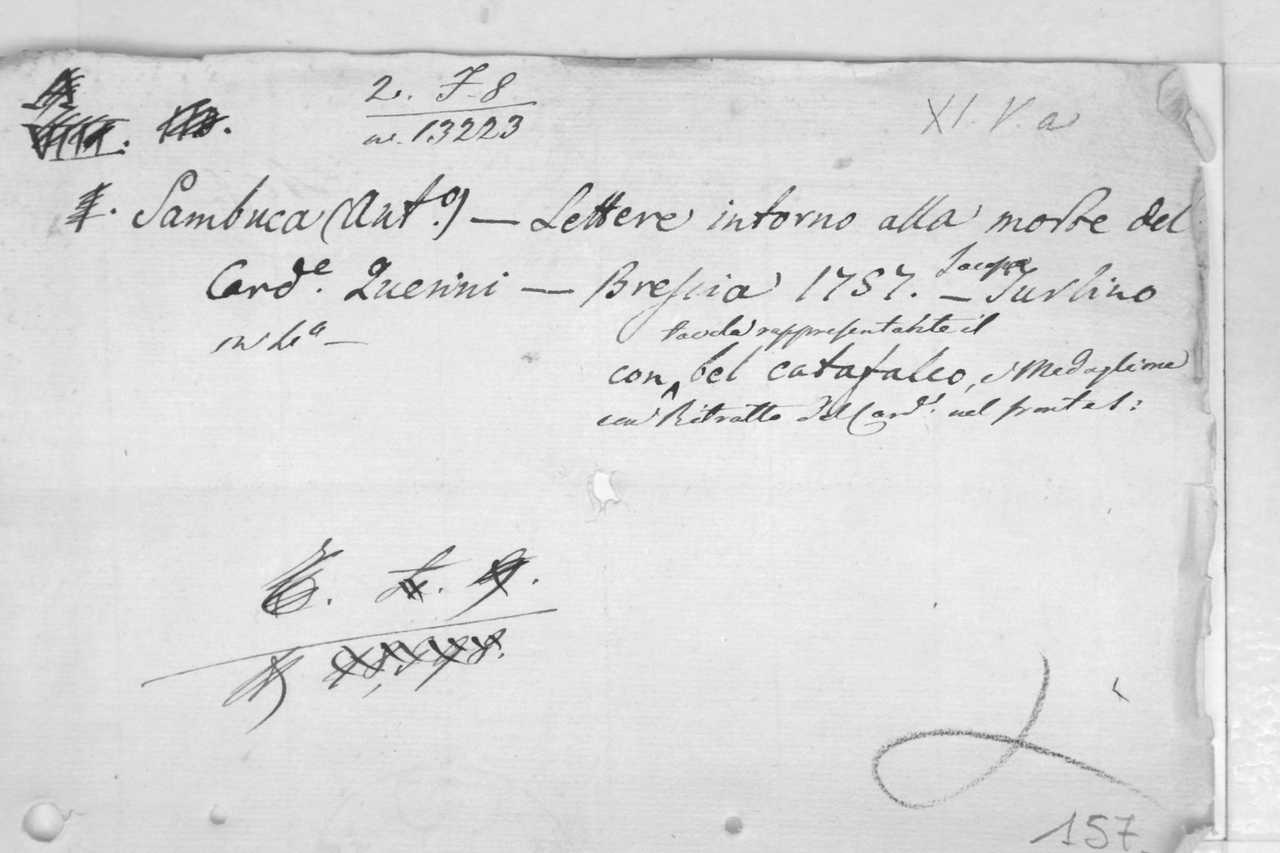 2. F. 8
n. 13223
XI. V. a
Sambuca (Ant.º) — Lettere intorno alla morte del
Card.e Querini — Brescia 1757. — Turlino
in 4.º —
tavola rappresentante il
con bel catafalco, e Medaglione
con Ritratto del Card.e nel frontes:
157